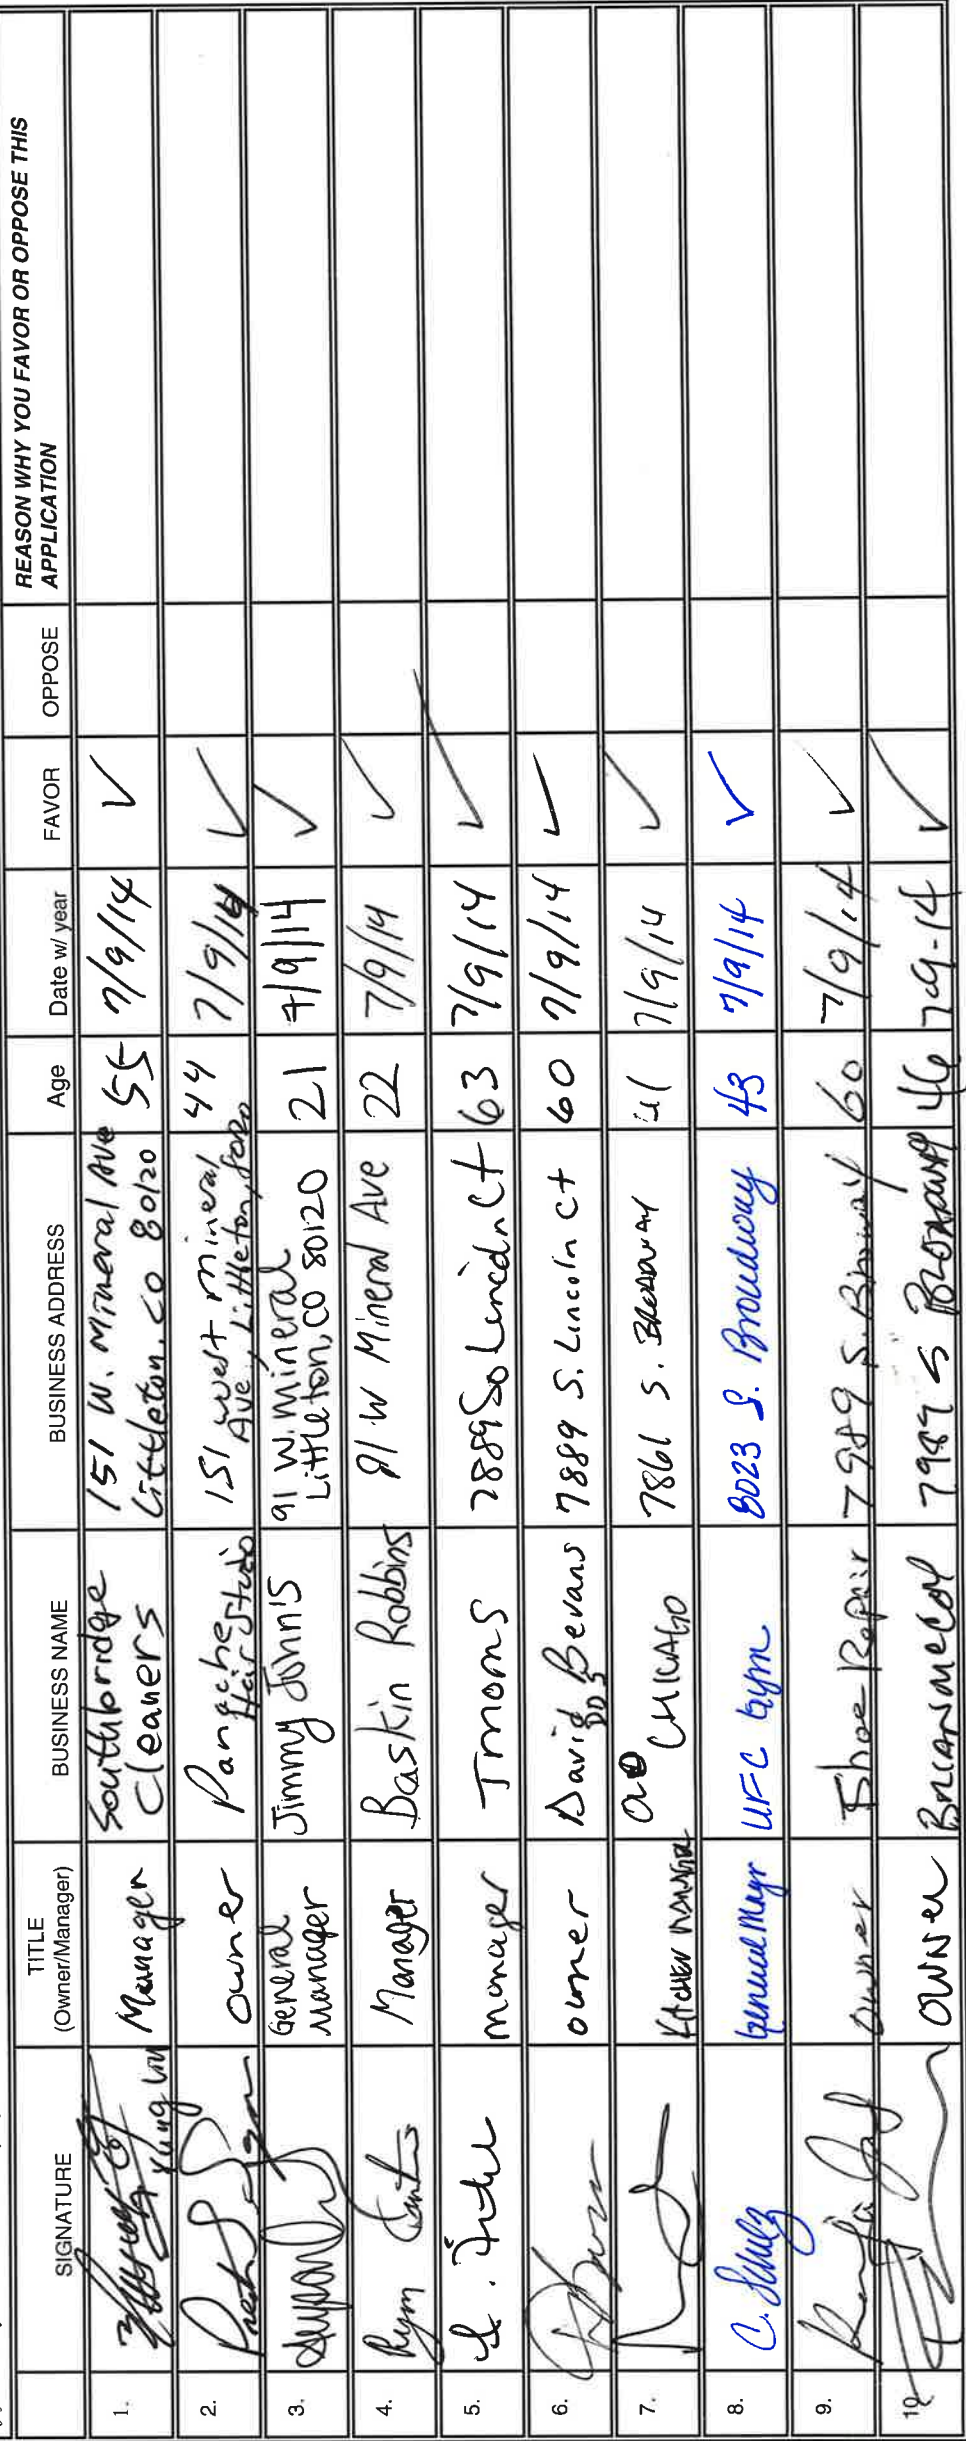 SIGNATURE TITLE (Owner/Manager) BUSINESS NAME BUSINESS ADDRESS Age Date w/ year FAVOR OPPOSE REASON WHY YOU FAVOR OR OPPOSE THIS APPLICATION
1. Manager Southbridge Cleaners 151 W. Mineral Ave Littleton, CO 80120 55 7/9/14 ✓
2. owner Panache Hair Studio 151 west mineral Ave, Littleton, 44 7/9/14 ✓
3. General Manager Jimmy John's 91 W. Mineral Littleton, CO 80120 21 7/9/14 ✓
4. Ryan Manager Baskin Robbins 91 W Mineral Ave 22 7/9/14 ✓
5. manager Tmoms 7889 So Lincoln Ct 63 7/9/14 ✓
6. owner David Bevans DDS 7889 S. Lincoln Ct 60 7/9/14 ✓
7. Kitchen Manager Old CHICAGO 7861 S. Broadway 7/9/14 ✓
8. C. Schulz General Mngr UFC Gym 8023 S. Broadway 43 7/9/14 ✓
9. owner Shoe Repair 7989 S. Broadway 60 7/9/14 ✓
10. OWNER 7987 S BROADWAY 46 7-9-14 ✓